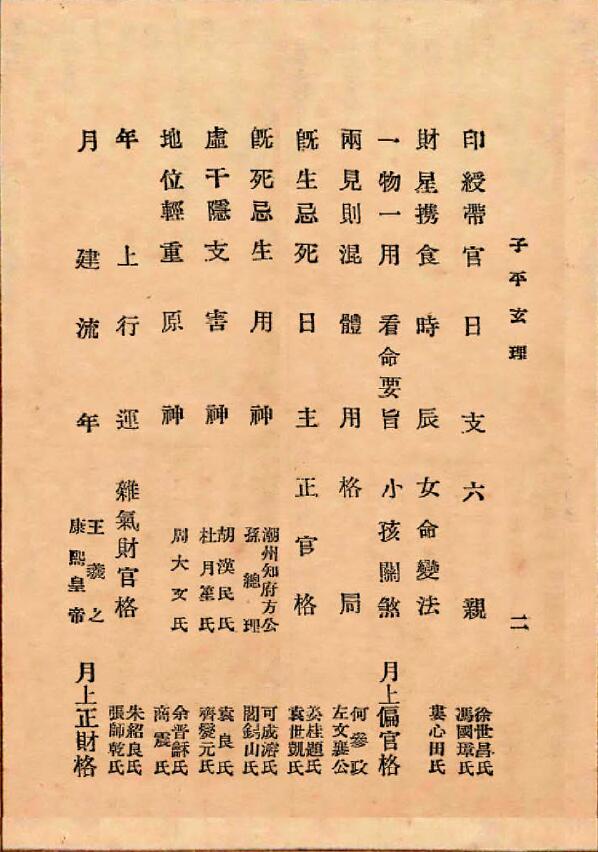 子平玄理
二
印綬帶官 日支 六親 徐世昌氏
馮國璋氏
財星携食 時辰 女命變法 婁心田氏
一物一用 看命要旨 小孩關煞 月上偏官格
兩見則混 體用 格局 何參政
左文襄公
既生忌死 日主 正官格 姜桂題氏
袁世凱氏
既死忌生 用神 潮州知府方公 可成濬氏
孫總理 閻錫山氏
虛干隱支 害神 胡漢民氏 袁良氏
杜月笙氏 齊燮元氏
地位輕重 原神 周大文氏 余晋龢氏
商震氏
年上行運 雜氣財官格 朱紹良氏
張師乾氏
月建流年 王羲之 月上正財格
康熙皇帝